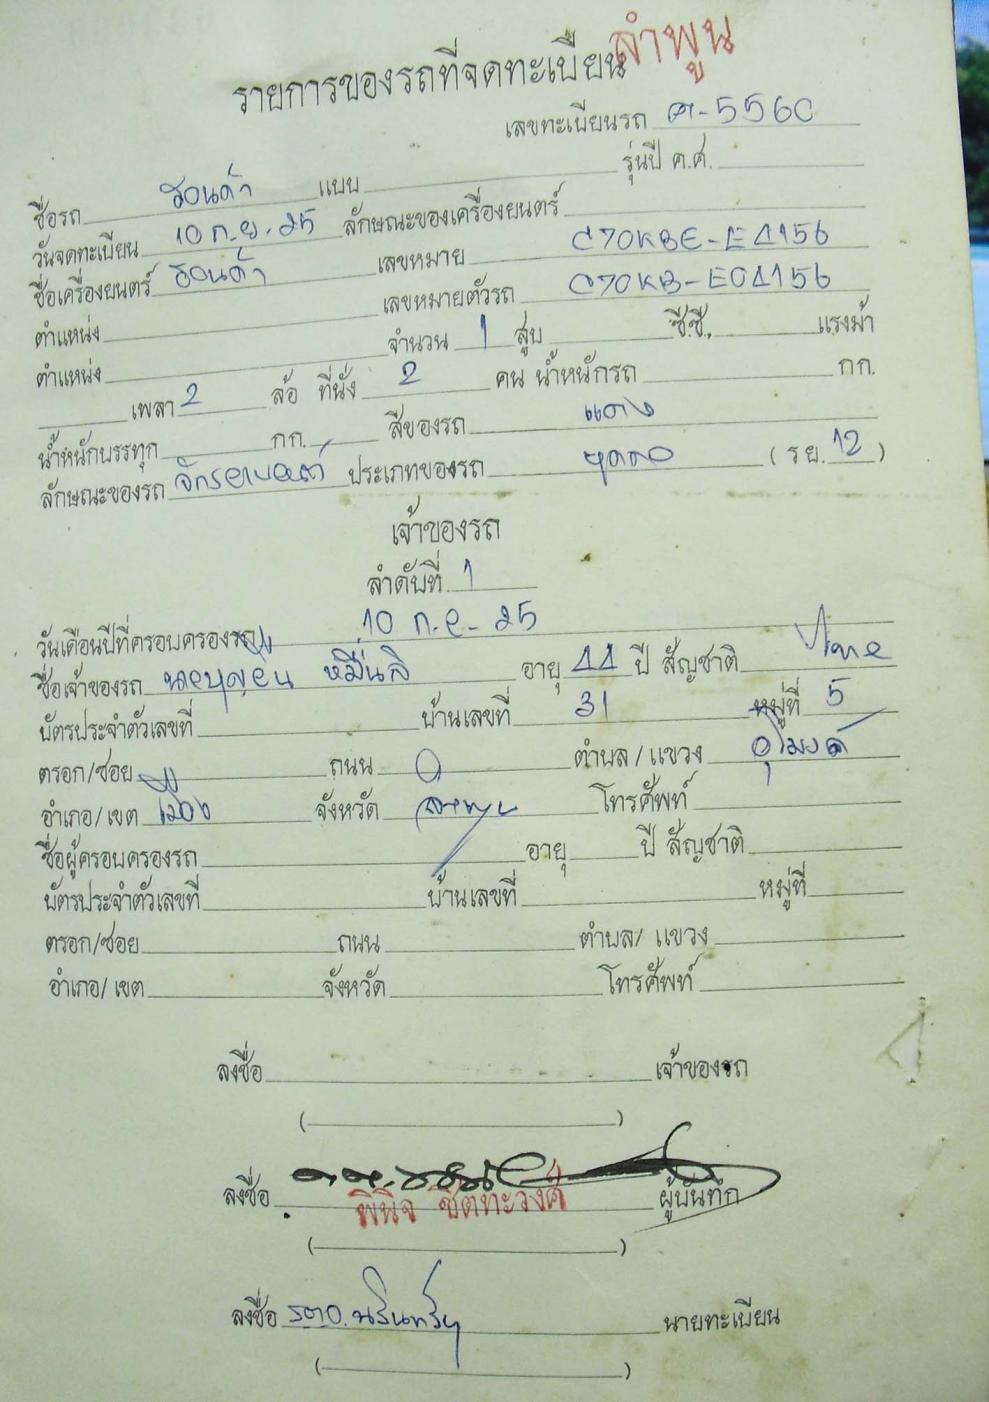 ลำพูน
รายการของรถที่จดทะเบียน
เลขทะเบียนรถ
ชื่อรถ ฮอนด้า แบบ รุ่นปี ค.ศ.
วันจดทะเบียน 10 ก.ย. 25 ลักษณะของเครื่องยนตร์
ชื่อเครื่องยนตร์ ฮอนด้า เลขหมาย
ตำแหน่ง เลขหมายตัวรถ
ตำแหน่ง จำนวน 1 สูบ ซี.ซี. แรงม้า
เพลา 2 ล้อ ที่นั่ง 2 คน น้ำหนักรถ กก.
น้ำหนักบรรทุก กก. สีของรถ แดง
ลักษณะของรถ จักรยานยนต์ ประเภทของรถ (รย. 12)
เจ้าของรถ
ลำดับที่ 1
วันเดือนปีที่ครอบครองรถ 10 ก.ย. 25
ชื่อเจ้าของรถ อายุ 44 ปี สัญชาติ ไทย
บัตรประจำตัวเลขที่ บ้านเลขที่ 31 หมู่ที่ 5
ตรอก/ซอย ถนน ตำบล/แขวง อุโมงค์
อำเภอ/เขต เมือง จังหวัด ลำพูน โทรศัพท์
ชื่อผู้ครอบครองรถ อายุ ปี สัญชาติ
บัตรประจำตัวเลขที่ บ้านเลขที่ หมู่ที่
ตรอก/ซอย ถนน ตำบล/แขวง
อำเภอ/เขต จังหวัด โทรศัพท์
ลงชื่อ เจ้าของรถ
( )
ลงชื่อ พินิจ ชิตทะวงศ์ ผู้บันทึก
( )
ลงชื่อ นายทะเบียน
( )